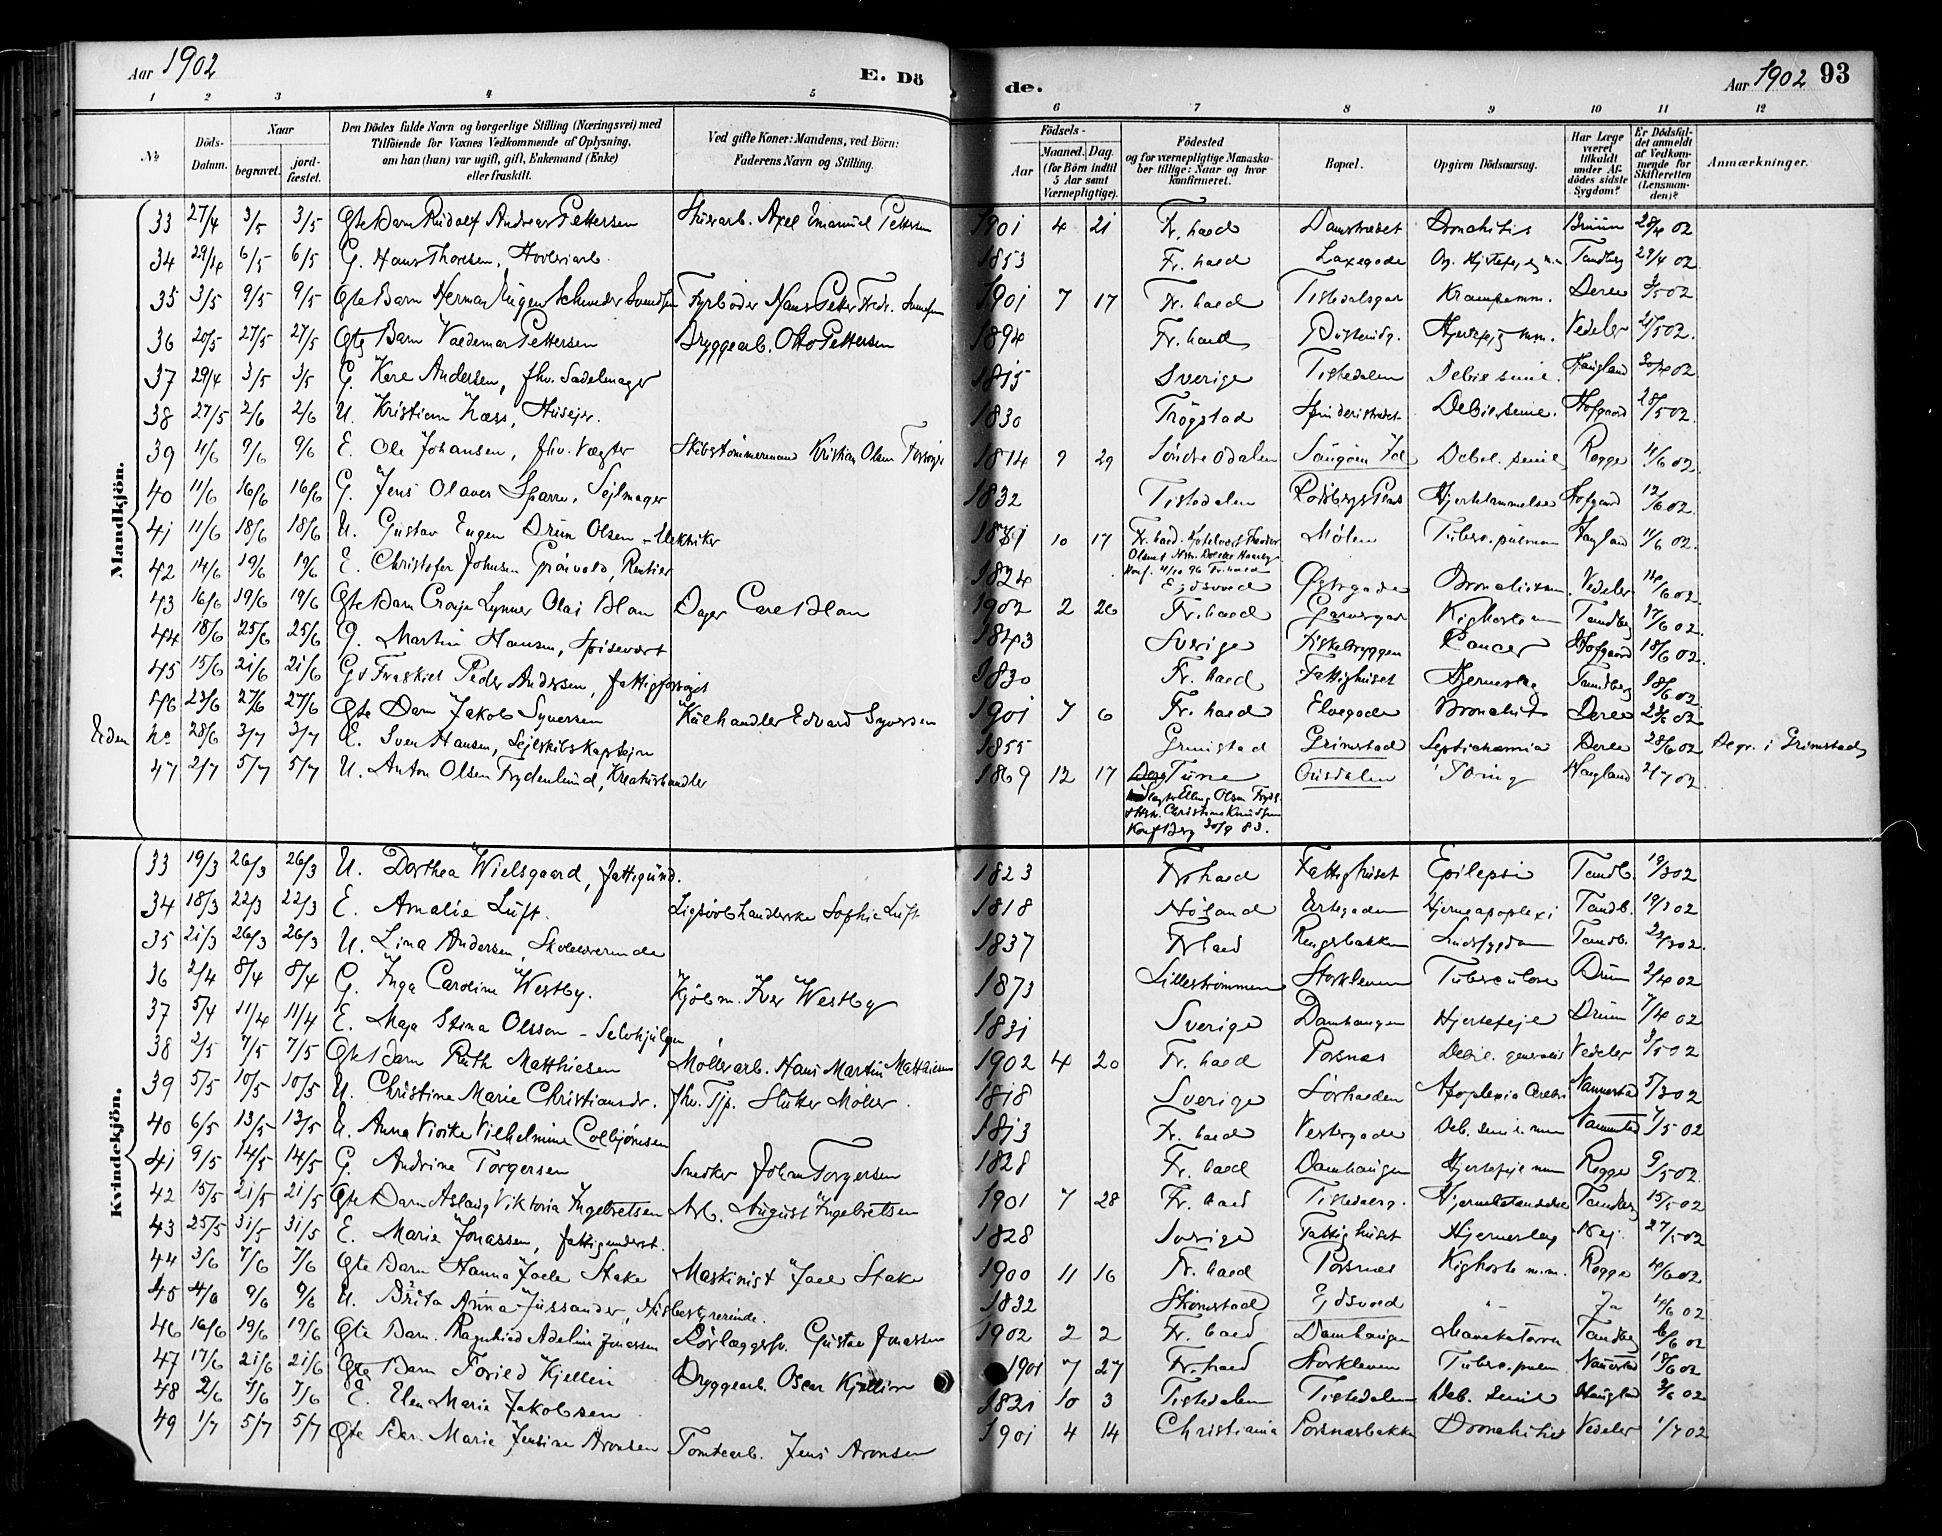 Aar 1902
E. Dö
de.
Aar 1902 93
1 2 3 4 5 6 7 8 9 10 11 12
No
Döds-Datum.
Naar
begravet.
jordfæstet.
Den Dödes fulde Navn og borgerlige Stilling (Næringsvei) med
Tilföiende for Voxnes Vedkommende af Oplysning,
om han (hun) var ugift, gift, Enkemand (Enke)
eller fraskilt.
Ved gifte Koner: Mandens, ved Börn:
Faderens Navn og Stilling.
Födsels-
Aar
Maaned. Dag.
(for Börn indtil
5 Aar samt
Værnepligtige).
Födested
og for værnepligtige Mandskaber tillige: Naar og hvor
konfirmeret.
Bopæl.
Opgiven Dödsaarsag.
Har Læge
været
tilkaldt
under Afdödes sidste
Sygdom?
Er Dödsfaldet anmeldt
af Vedkommende for
Skifteretten
(Lensmanden)?
Anmærkninger.
Mandkjön.
33 27/4 3/5 3/5 Gte Barn Rudolf Andreas Pettersen Axel Emanuel Pettersen 1901 4 21 Fr.hald Damstrædet Bronchitis Bruun 28/4 02
34 29/4 6/5 6/5 G. Hans Thoresen, Høvleriarb. 1853 Fr.hald Laxegade Tandberg 29/4 02
35 3/5 9/5 9/5 Gte Barn Herman Eugen Schrøder Svendsen Fyrbøder Hans Peter Fredr. Svendsen 1901 7 17 Fr.hald Tistedalsgad Krampe m.m. Deree 3/5 02
36 20/5 27/5 27/5 Gte Barn Valdemar Pettersen Bryggearb. Otto Pettersen 1894 Fr.hald Vedeler 21/5 02.
37 29/4 3/5 3/5 G. Andersen, fhv. Sadelmager 1815 Sverige Tistedalen Debil. senil. Haugland 30/4 02.
38 27/5 2/6 2/6 U. Kristian Næss, Husejer. 1830 Trøgstad Spinderistrædet Debil. senil. Hofgaard 28/5 02.
39 4/6 9/6 9/6 E. Ole Johansen, fhv. Vægter Skibstømmermand Kristian Olsen 1814 9 29 Søndre Odalen Debil. senil Rogge 4/6 02.
40 11/6 16/6 16/6 G. Jens Olaves Sparre, Sejlmager 1832 Tistedalen Rødsbergs Plads Hjertelammelse Hofgaard 12/6 02.
41 11/6 18/6 18/6 U. Gustav Eugen Brun Olsen - Elektriker 10 17 Fr.hald. Mølen Tuberc. pulmon Haugland 11/6 02.
Konf. 4/10 96 Fr.hald
42 14/6 19/6 19/6 E. Christofer Johnsen Grönvold, Rentier 1824 Ejdsvold Østregade Vedeler 14/6 02.
43 16/6 19/6 19/6 Gte Barn Cronje Lynner Olai Blom Bager Carl Blom 1902 2 26 Fr.hald Kighoste m Tandberg 17/6 02.
44 18/6 25/6 25/6 G. Martin Hansen, Spisevært 1843 Sverige Fiskebryggen Cancer Hofgaard 18/6 02.
45 15/6 21/6 21/6 Fraskilt Peder Andersen, fattigforsørget 1830 Fr.hald Fattighuset Hjerneslag Tandberg 18/6 02
46 23/6 27/6 27/6 Gte Barn Jakob Syversen Kulhandler Edvard Syversen 1901 7 6 Fr.hald Elvegade Bronchit Deree 23/6 02
Uden No 28/6 3/7 3/7 E. Sven Hansen, Sejlskibskaptejn 1855 Grimstad Grimstad Septichæmia Deree 28/6 02 Begr. i Grimstad
47 2/7 5/7 5/7 U. Anton Olsen Frydenlund, Kreaturhandler 1869 12 17 Tune Haugland 2/7 02
Olsen Frydl.
Christine Knudsen
Konf Berg 30/9 83.
Kvindekjön.
33 19/3 26/3 26/3 U. Dorthea Wielsgaard, fattigund. 1823 Fr.hald Fattighuset Epilepsi Tandb. 19/3 02
34 18/3 22/3 22/3 E. Amalie Luft. Ligsvøbhandlerske Sophie Luft 1818 Hjerneapoplexi Tandb. 19/3 02
35 21/3 26/3 26/3 U. Lina Andersen, Skolelærerinde 1837 Fr.hald Sindssygdom Tandb. 22/3 02.
36 2/4 8/4 8/4 G. Inga Caroline Westby. Kjøbm. Iver Westby 1873 Lillestrømmen Storkleven Tuberculose Bruun 2/4 02
37 5/4 11/4 11/4 E. Maja Stina Olsson - Selvhjulpen 1831 Sverige Damhaugen Hjertefejl Bruun 7/4 02
38 2/5 7/5 7/5 Gte Barn Ruth Matthiesen Møllerarb. Hans Martin Matthiesen 1902 4 20 Fr.hald Porsnæs Debil. generalis Vedeler 3/5 02
39 5/5 10/5 10/5 U. Christine Marie Christiansdr. fhv. Tjp. Slutter Møller. 1818 Sverige Sørhalden Apoplexia Cerebri Nannestad 5/3 02
40 6/5 13/5 13/5 U. Anna Vivike Vilhelmine Colbjørnsen 1813 Fr.hald Vestergade Deb. senil. m.m Nannestad 7/5 02
41 9/5 14/5 14/5 G. Andrine Torgersen Snedker Johan Torgersen 1828 Fr.hald Damhaugen Hjertefejl m.m Rogge 9/5 02.
42 15/5 21/5 21/5 Gte Barn Aslaug Viktoria Ingebretsen Arb. August Ingebretsen 1901 7 28 Fr.hald Tistedalsg. Hjernebetændelse Tandberg 15/5 02
43 25/5 31/5 31/5 E. Marie Jonassen, fattigunderst. 1828 Sverige Fattighuset Hjerneslag Nej. 27/5 02
44 3/6 7/6 7/6 Gte Barn Hanna Joele Stake Maskinist Joel Stake 1900 11 16 Fr.hald Porsnæs Kighoste m.m. Rogge 4/6 02
45 4/6 9/6 9/6 U. Brita Anna Jussander, Husbestyrerinde. 1832 Strømstad Ejdsvold -"- Ja 4/6 02
46 16/6 19/6 19/6 Gte Barn. Ragnhild Adeline Jonassen Gustav Jonassen 1902 2 2 Fr.hald Damhaugen Mavekatarrh Tandberg 16/6 02
47 17/6 21/6 21/6 Gte Barn Toried Kjellin Bryggearb. Oscar Kjellin 1901 7 27 Fr.hald Storkleven Tuberc. pulm. Nannestad 18/6 02
48 2/6 7/6 7/6 E. Elen Marie Jakobsen 1821 10 3 Tistedalen Tistedalen Deb. senil Haugland 3/6 02
49 1/7 5/7 5/7 Gte Bar. Marie Jensine Aronsen Tomtearb. Jens Aronsen 1901 4 14 Christiania Porsnæsbakke Bronchitis Vedeler 1/7 02